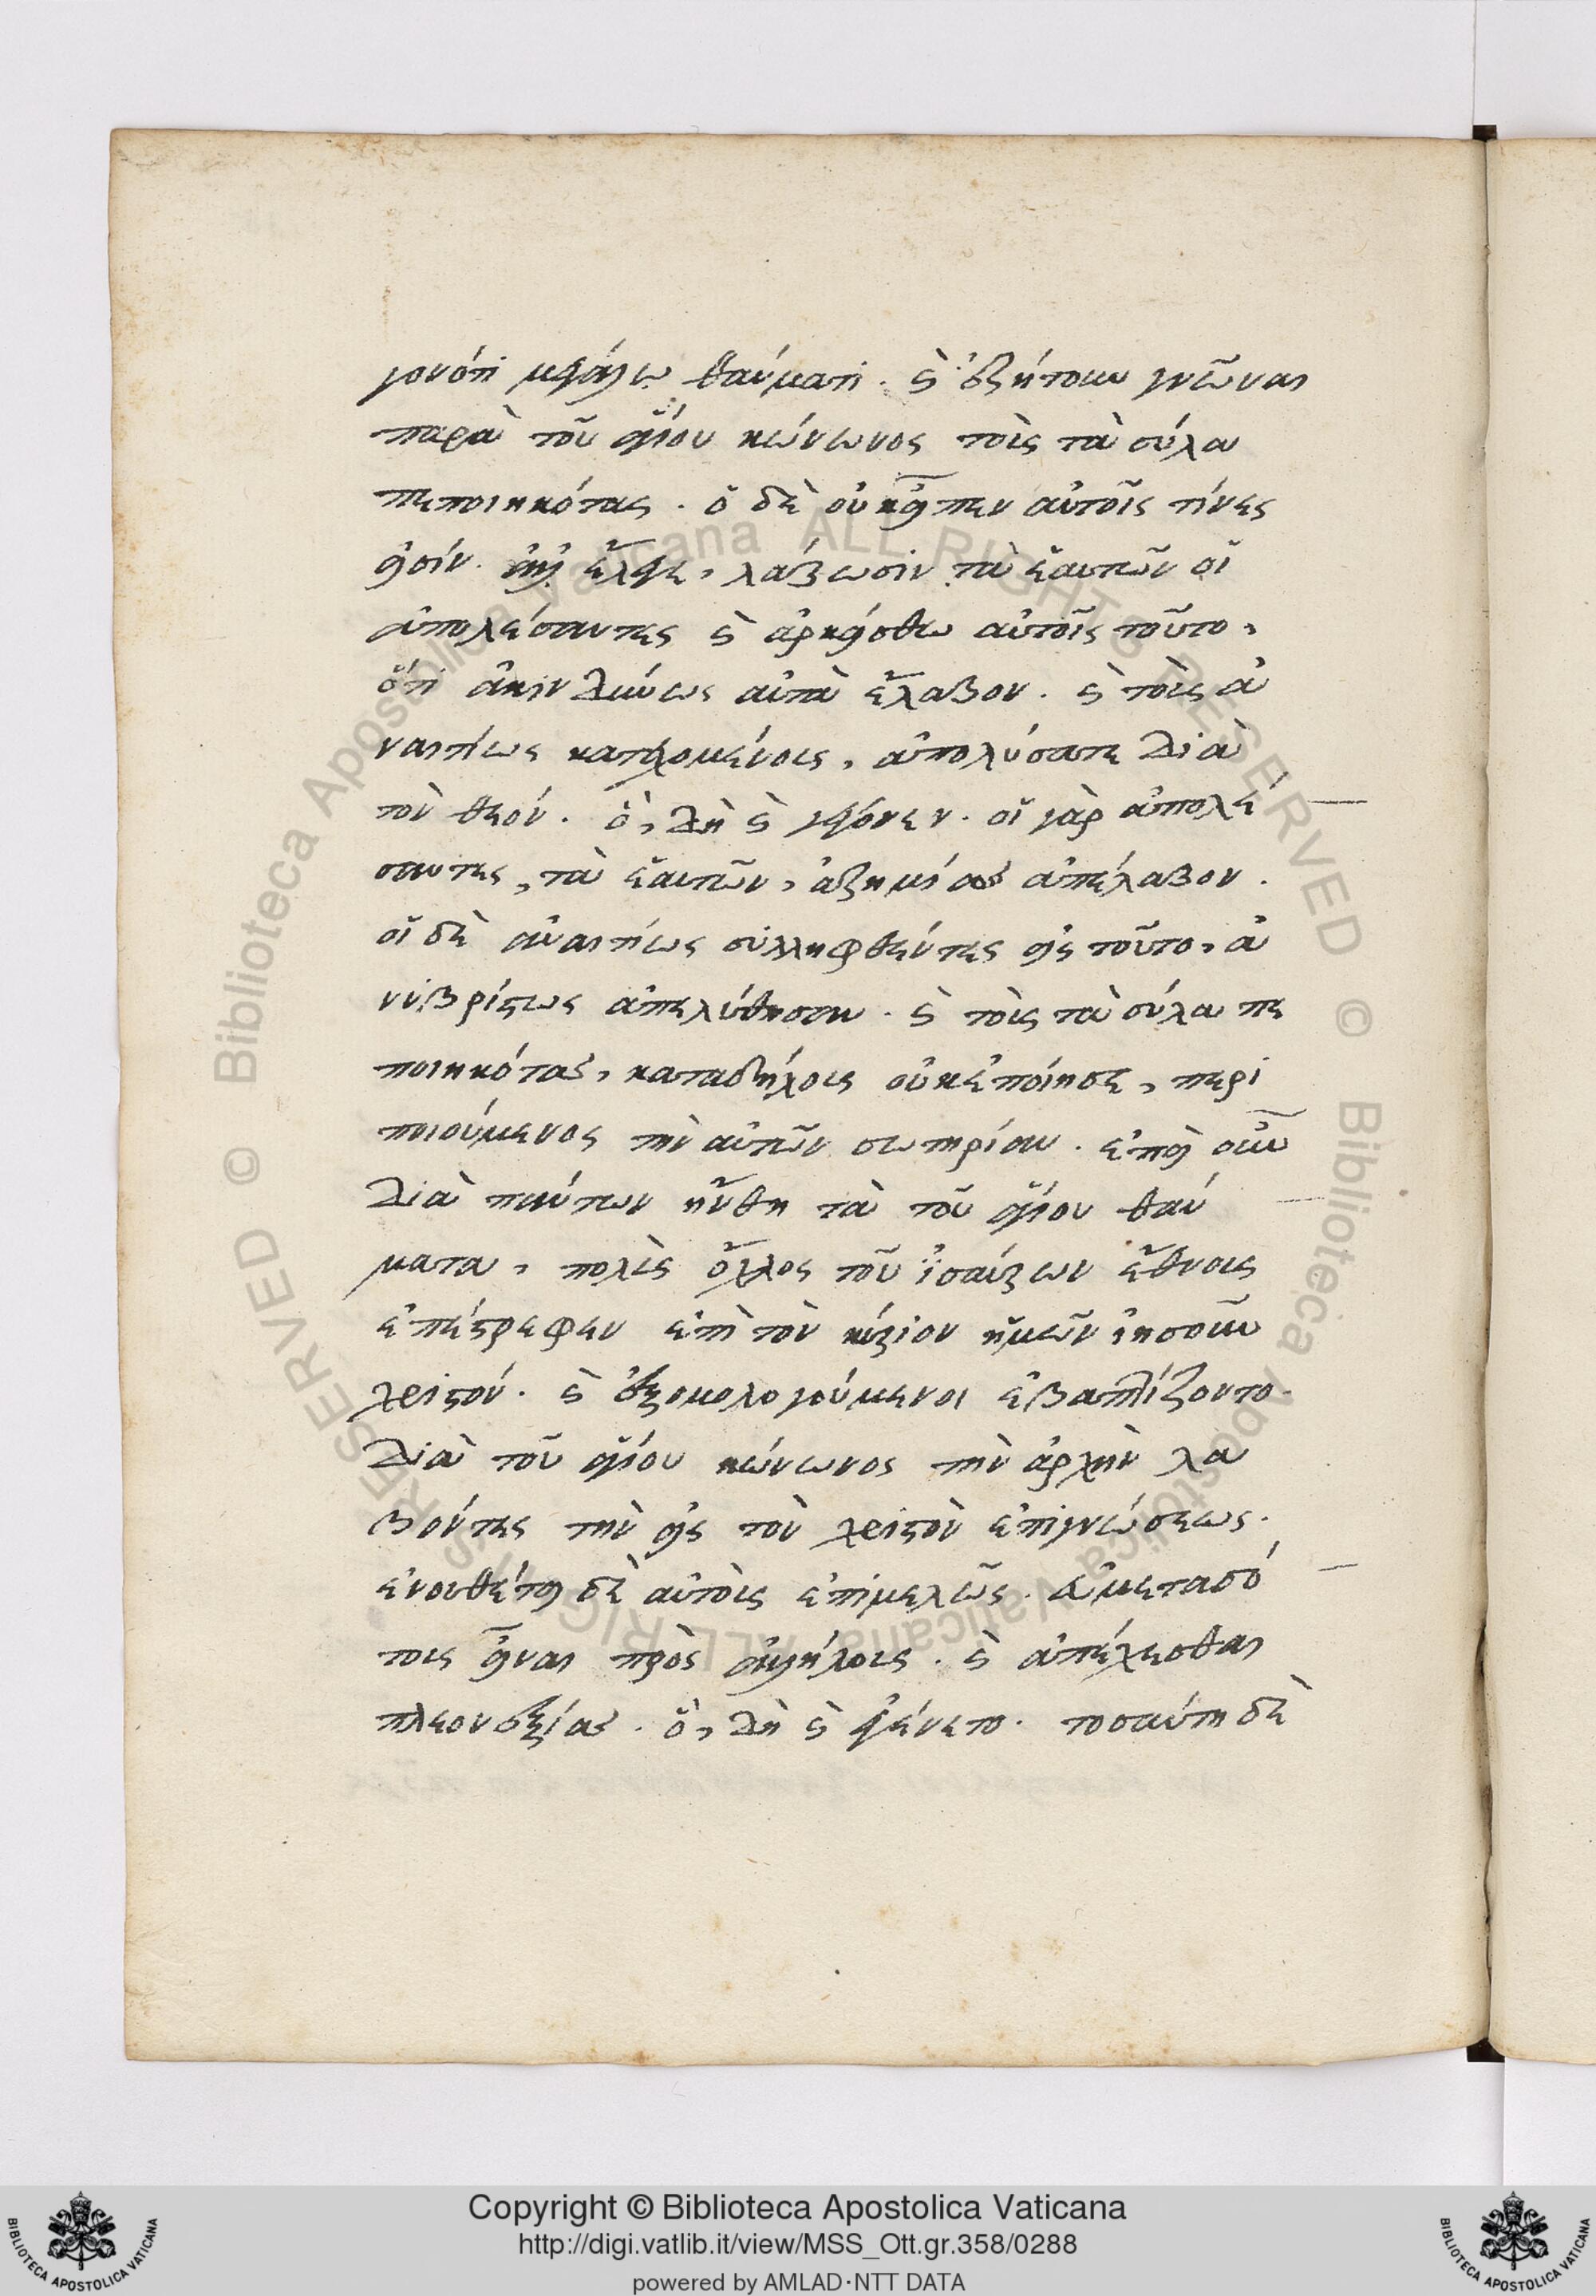 γονότι μεγάλω θαύματι. καὶ ἐζήτουν γνῶναι
παρὰ τοῦ ἁγίου κώνωνος τοὺς τὰ σύλα
πεποιηκότας. ὁ δὲ οὐκ εἶπεν αὐτοῖς τίνες
εἰσίν. ἀλλ' ἔλεγε, λάβωσιν τὰ ἑαυτῶν οἱ
ἀπολέσαντες καὶ ἀρκείσθω αὐτοῖς τοῦτο,
ὅτι ἀκινδύνως αὐτὰ ἔλαβον. καὶ τοὺς ἀ
ναιτίως κατεχομένους, ἀπολύσατε διὰ
τὸν θεόν. ὃ, δὴ καὶ γέγονεν. οἱ γὰρ ἀπολέ
σαντες, τὰ ἑαυτῶν, ἀζημίως ἀπέλαβον.
οἱ δὲ ἀναιτίως συλληφθέντες εἰς τοῦτο, ἀ
νυβρίστως ἀπελύθησαν. καὶ τοὺς τὰ σύλα πε
ποιηκότας, καταδήλους οὐκ ἐποίησε, περι
ποιούμενος τὴν αὐτῶν σωτηρίαν. ἐπεὶ οὖν
διὰ πάντων ηὔθη τὰ τοῦ ἁγίου θαύ
ματα, πολὺς ὄχλος τοῦ ἰσαύρων ἔθνους
ἐπέστρεφεν ἐπὶ τὸν κύριον ἡμῶν ἰησοῦν
χριστόν. καὶ ἐξομολογούμενοι ἐβαπτίζοντο.
διὰ τοῦ ἁγίου κώνωνος τὴν ἀρχὴν λα
βόντες τὴν εἰς τὸν χριστὸν ἐπιγνώσεως.
ἐνουθέτει δὲ αὐτοὺς ἐπιμελῶς. εὐμεταδό
τους εἶναι πρὸς ἀλλήλους. καὶ ἀπέχεσθαι
πλεονεξίας. ὃ, δὴ καὶ ἐγένετο. τοσαύτη δὲ
Copyright © Biblioteca Apostolica Vaticana
http://digi.vatlib.it/view/MSS_Ott.gr.358/0288
powered by AMLAD·NTT DATA